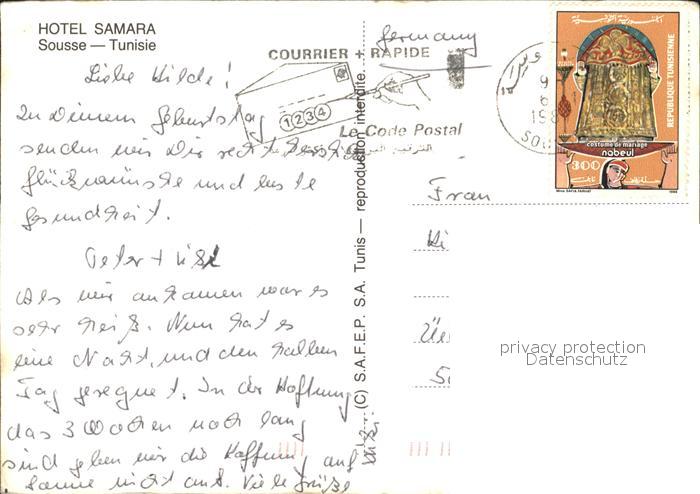 HOTEL SAMARA
Sousse — Tunisie
Germany
COURRIER + RAPIDE
1234
Le Code Postal
الترقيم البريدي
REPUBLIQUE TUNISIENNE
costume de mariage
nabeul
300
Liebe Hilde!
Zu Deinem Geburtstag
senden wir Dir recht herzliche
Glückwünsche und beste
Gesundheit.
Peter + Lisl
Als wir ankamen war es
sehr heiß. Nun hat es
eine Nacht, und den halben
Tag geregnet. In der Hoffnung
das 3 Wochen noch lang
sind geben wir die Hoffnung auf
Sonne nicht auf. Viele Grüße
(C) S.A.F.E.P. S.A. Tunis — reproduction interdite.
Frau
Hi
Üe
privacy protection
Datenschutz